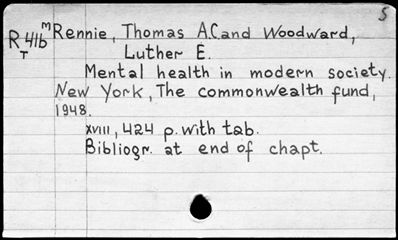 5
R41b M Rennie, Thomas A.C. and Woodward,
T Luther E.
Mental health in modern society.
New York, The commonwealth fund,
1948.
XVIII, 424 p. with tab.
Bibliogr. at end of chapt.